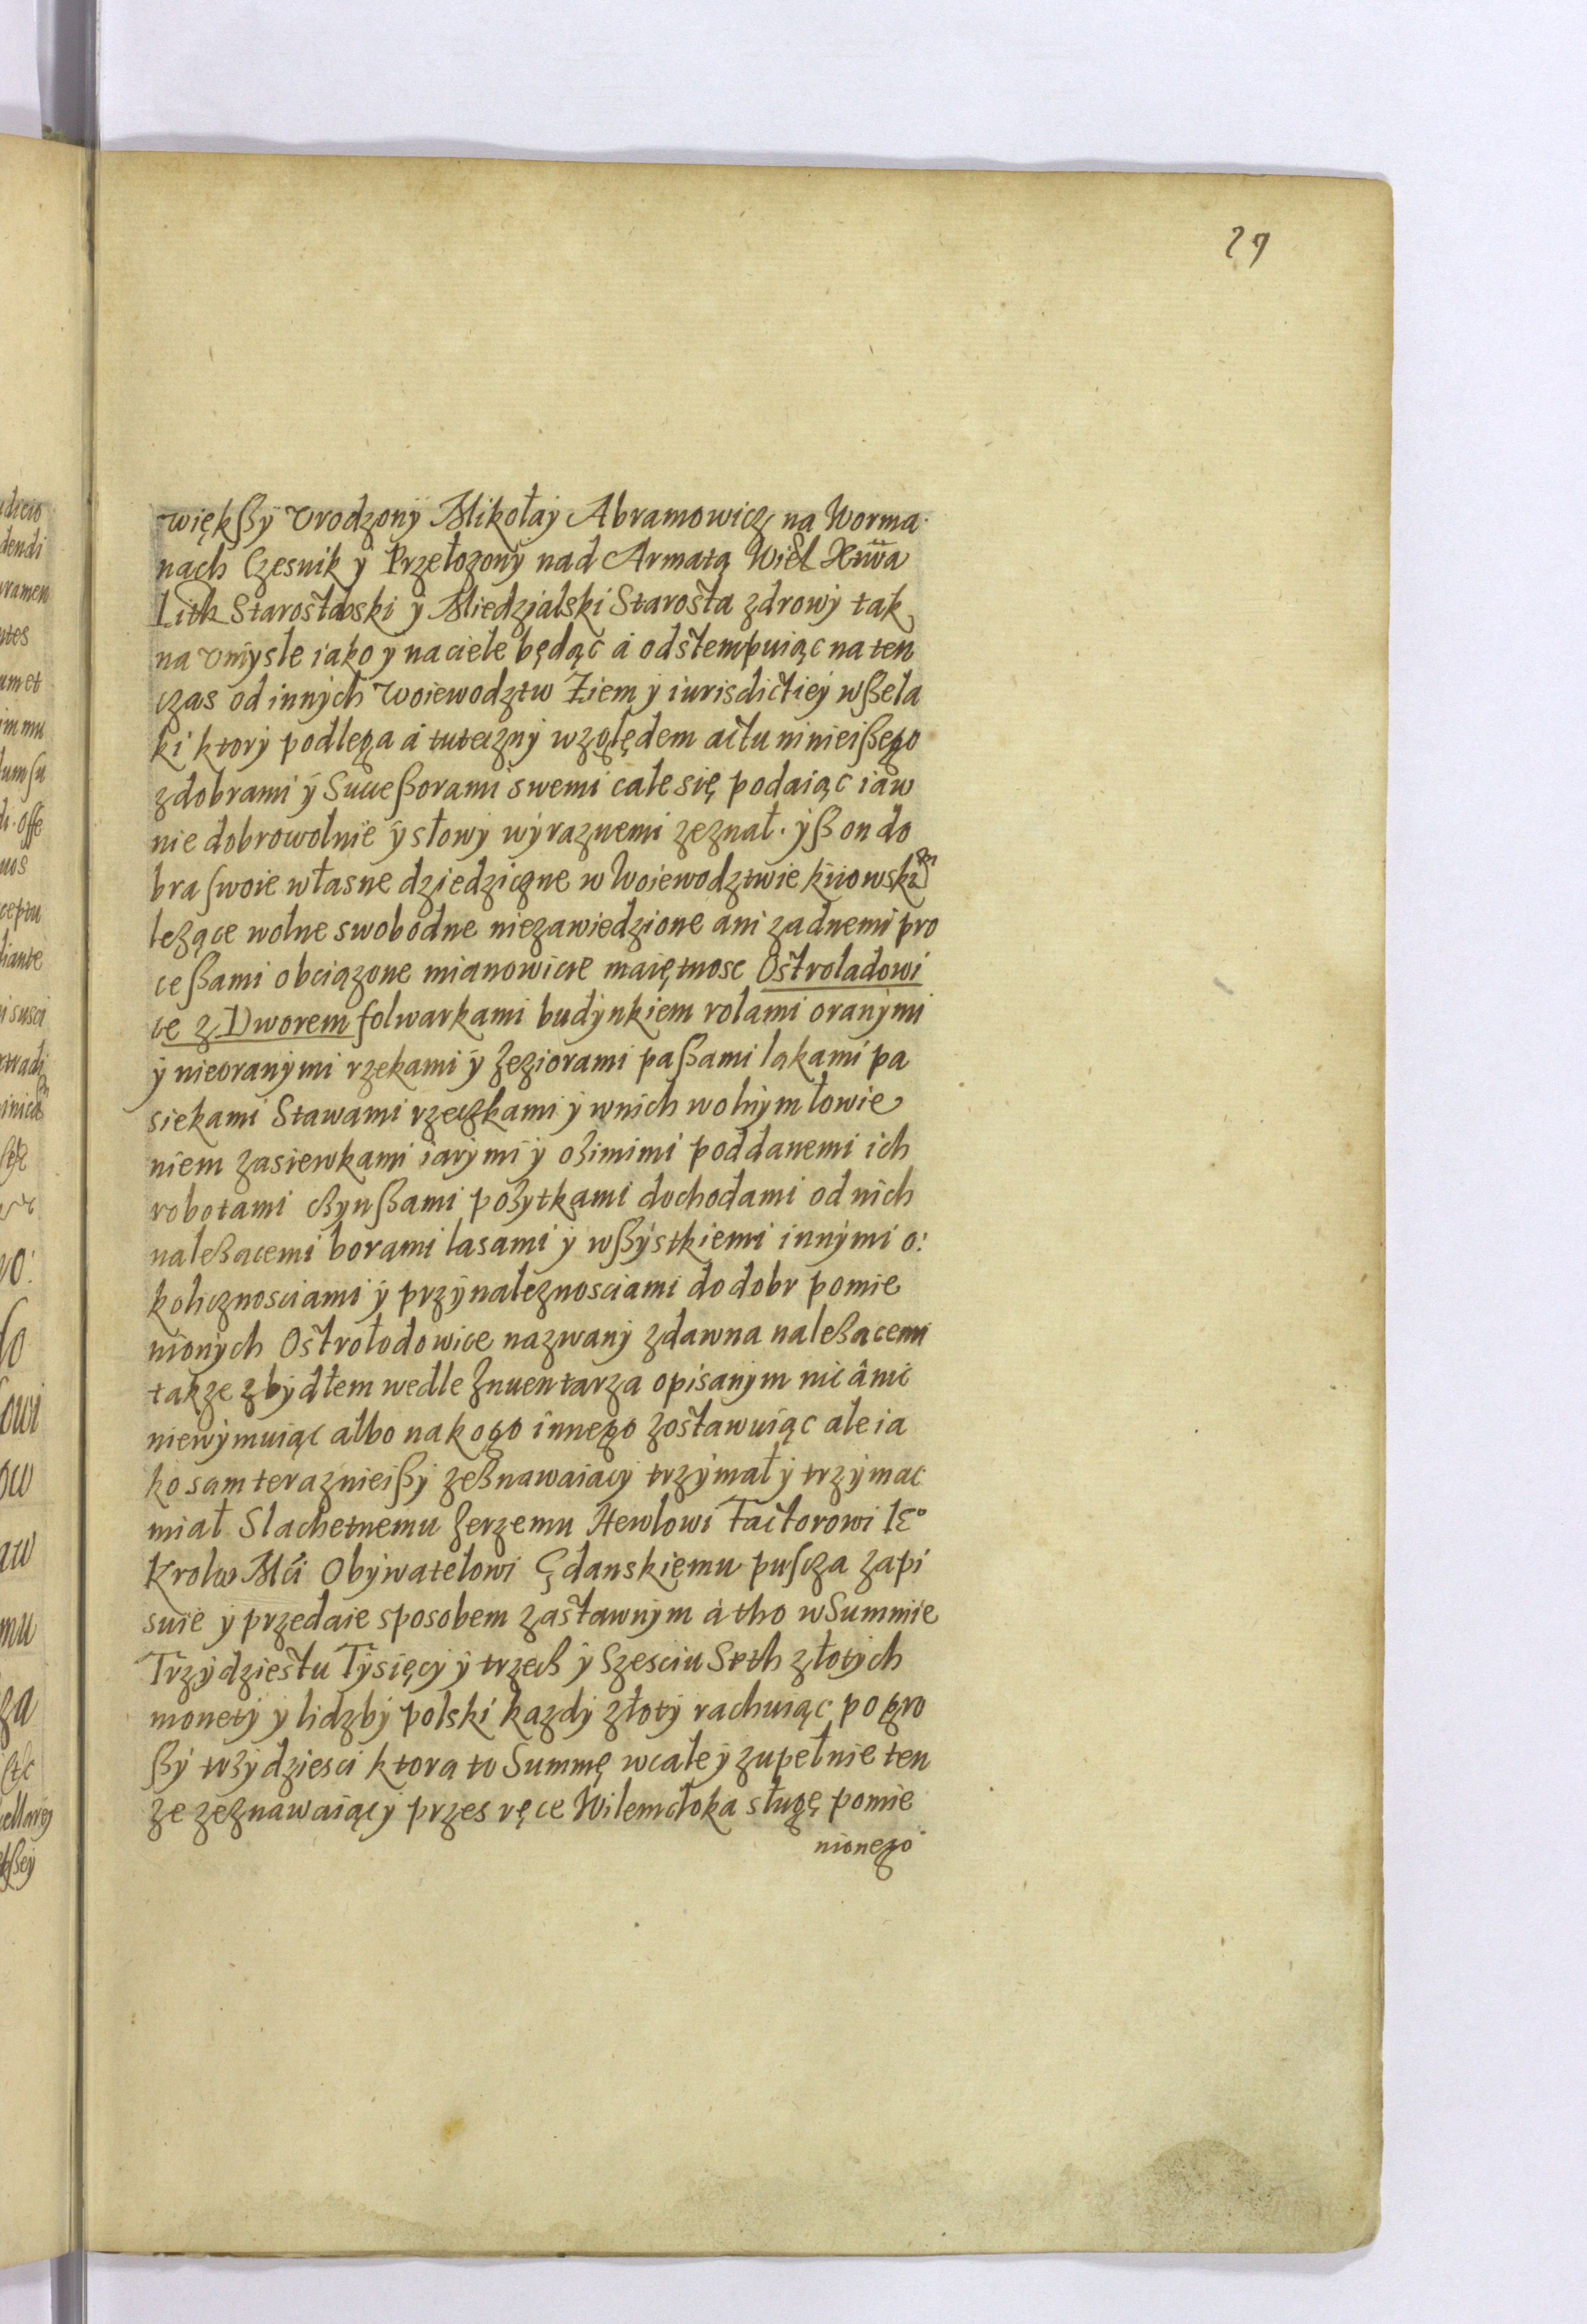 27
większÿ Vrodzonÿ Mikołaÿ Abramowicz na Worma
nach Czesnik ÿ Przełozonÿ nad Armatą Wiel Xtwa
Lith Starostabski ÿ Miedzialski Starosta zdrowÿ tak
na vmÿsle iako ÿ na ciele będąc á odstempuiąc na ten
czas od innÿch Woiewodztw Ziem ÿ iurisdictieÿ wßela
ki ktorÿ podlega á tutecznÿ względem actu ninieißego
z dobrami ÿ Succeßorami swemi cale się podaiąc iaw
nie dobrowolnie ÿ słowÿ wÿraznemi zeznał. ÿß on do
bra swoie własne dziedziczne w Woiewodztwie kiiowskim
lezące wolne swobodne niezawiedzione ani zadnemi pro
ceßami obciązone mianowicie maiętnosc Ostroladowi
ce z Dworem folwarkami budÿnkiem rolami oranÿmi
ÿ nieoranÿmi rzekami ÿ Jeziorami paßami ląkami pa
siekami Stawami rzeczkami ÿ wnich wolnÿm łowie
niem zasiewkami iarÿmi ÿ ozimimi poddanemi ich
robotami czÿnßami pozytkami dochodami od nich
nalezacemi borami lasami ÿ wßÿstkiemi innÿmi o:
kolicznosciami ÿ przÿnaleznosciami do dobr pomie
nionÿch Ostrołodowice nazwanÿ zdawna nalezacemi
takze z bÿdłem wedle Jnuentarza opisanÿm nic â nic
niewÿmuiąc albo na kogo innego zostawuiąc ale ia
ko sam teraznieißÿ zeznawaiacÿ trzÿmał ÿ trzÿmac
miał Slachetnemu Jerzemu Hewlowi Factorowi IEo
Krolw Mći Obÿwatelowi Gdanskiemu puscza zapi
suie ÿ przedaie sposobem zastawnÿm á tho w Summie
Trzÿdziestu Tÿsięcÿ ÿ trzech ÿ Szesciu Seth złotÿch
monetÿ ÿ lidzbÿ polski kazdÿ złotÿ rachuiąc po gro
ßÿ trzÿdziesci ktora to Summę wcale ÿ zupełnie ten
ze zeznawaiącÿ przes ręce Wilemcloka sługę pomie
nionego